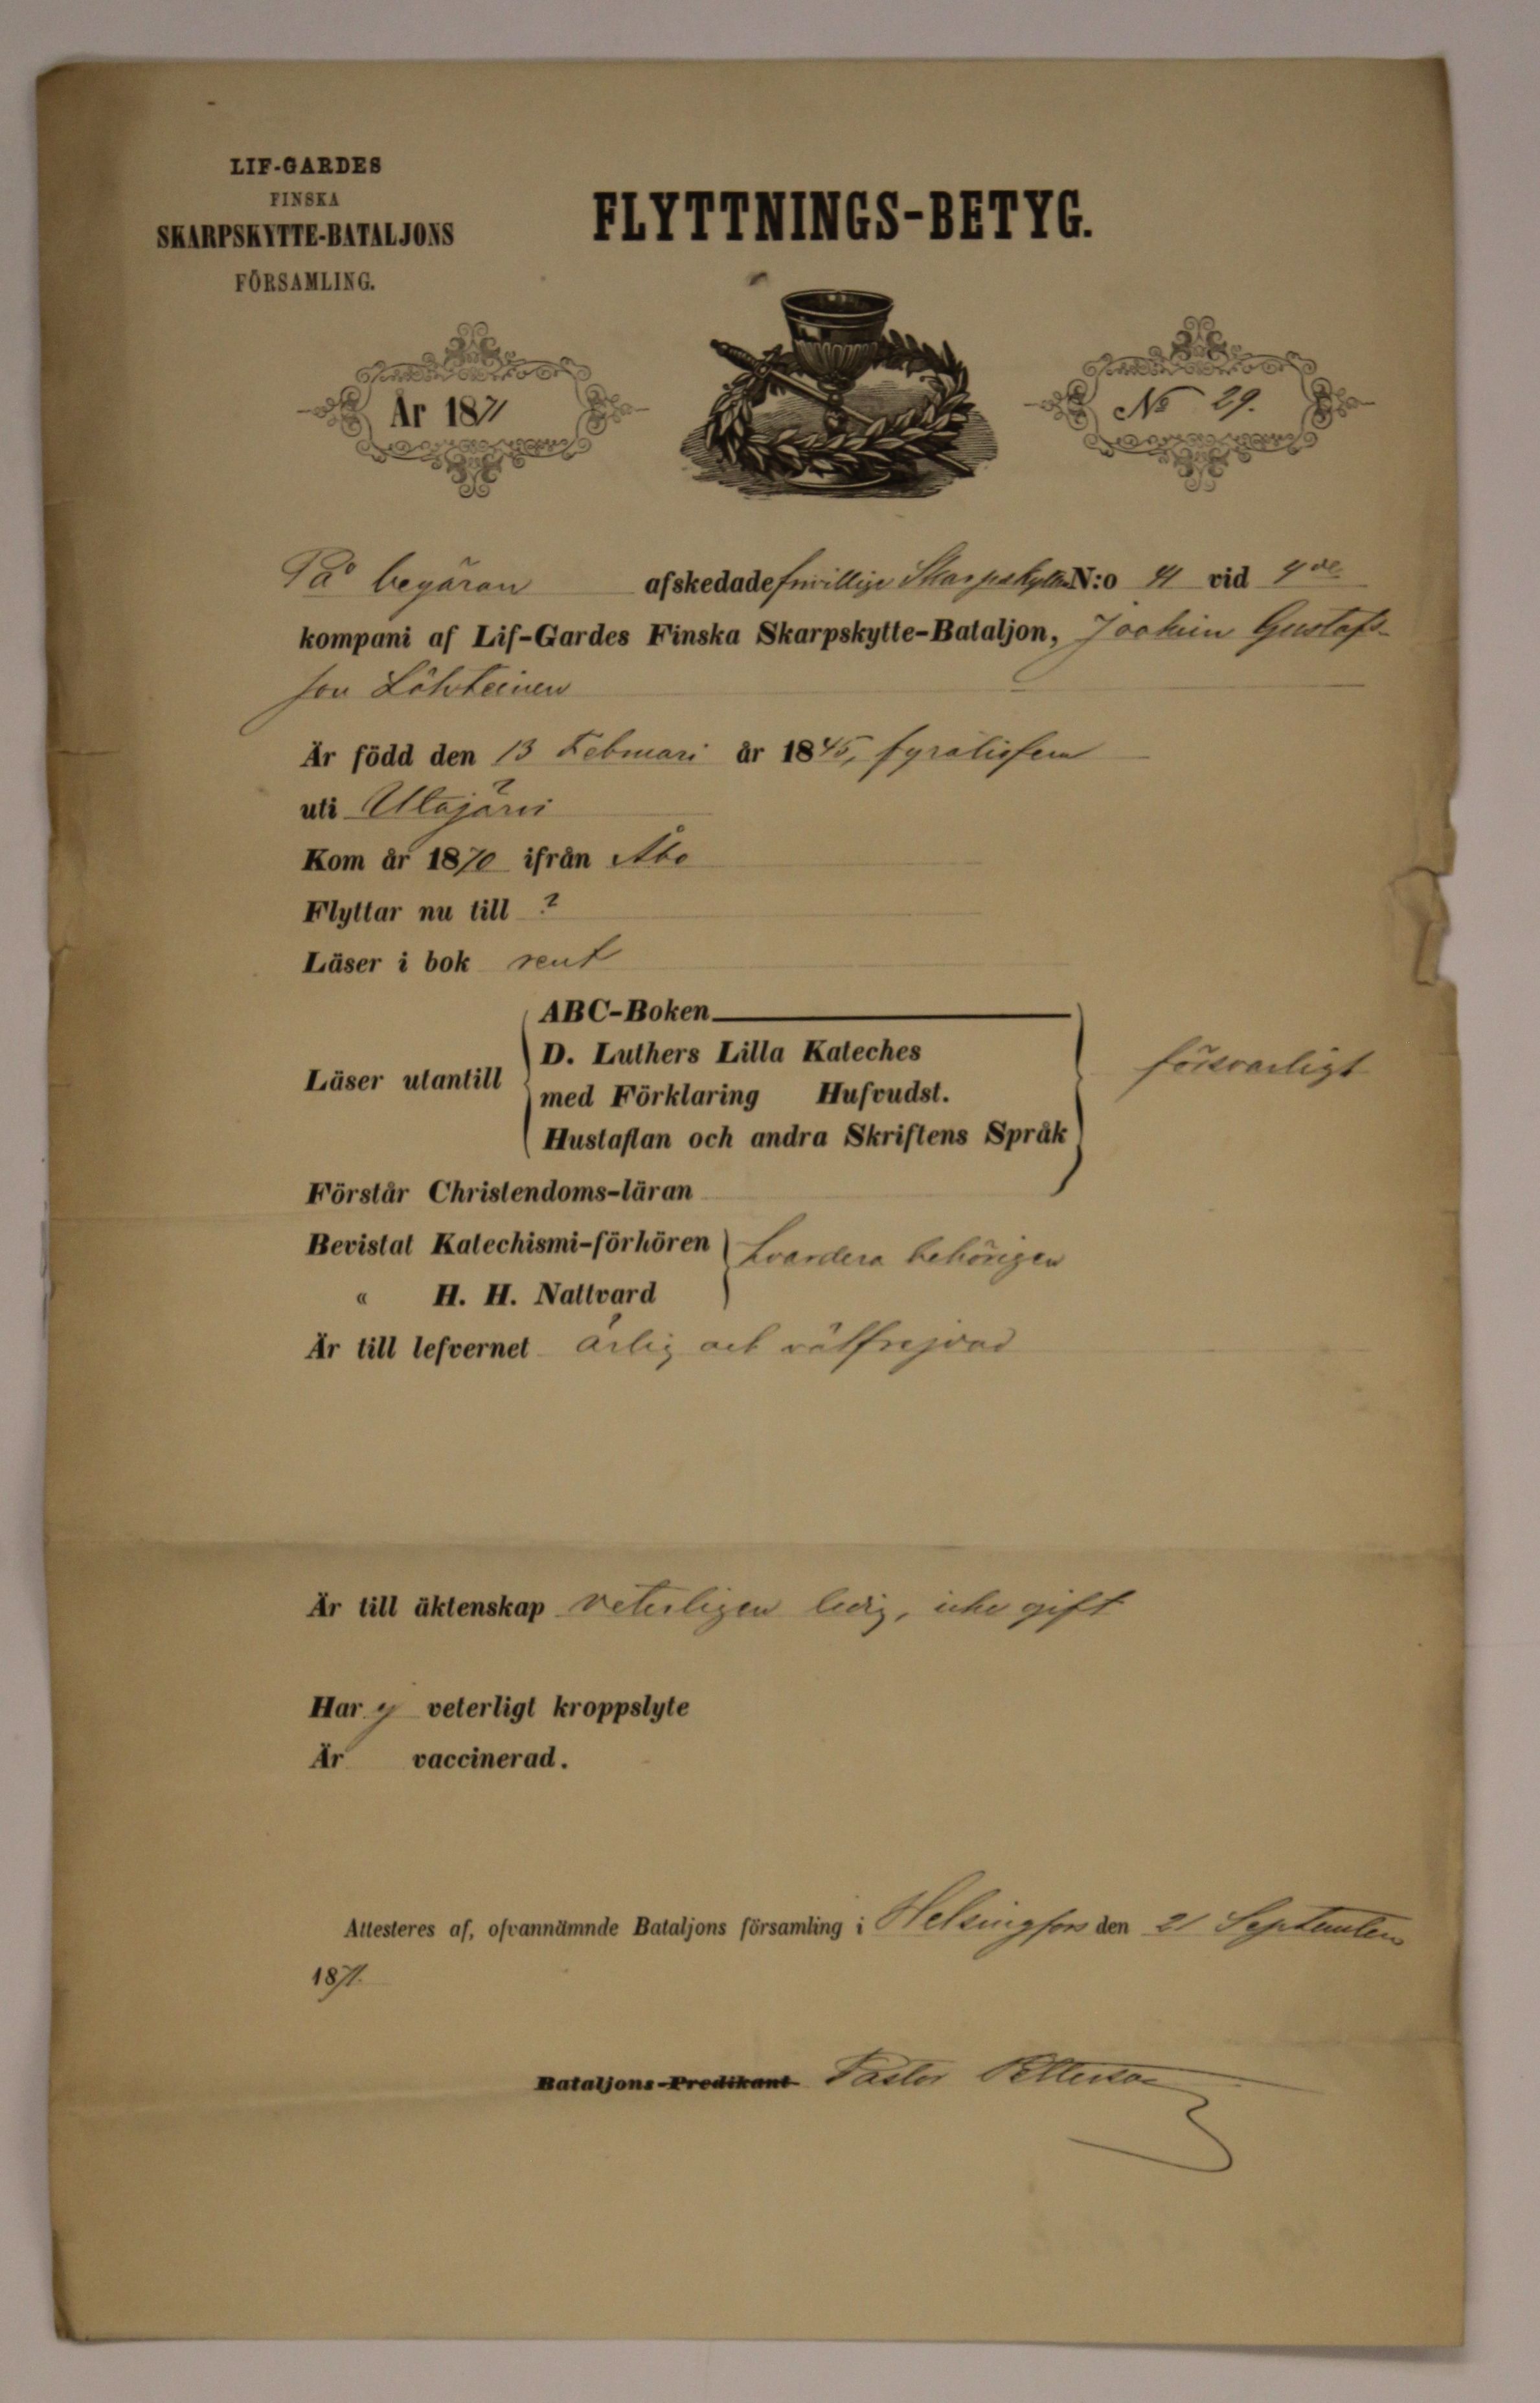 LIF-GARDES
FINSKA
SKARPSKYTTE-BATALJONS
FÖRSAMLING.
FLYTTNINGS-BETYG.
År 1871
No 29.
På begäran afskedade frivillige Skarpskytten N:o 41 vid 4de
kompani af Lif-Gardes Finska Skarpskytte-Bataljon, Joakim Gustafs-
son
Är född den 13 Februari år 1845, fyratiofem
uti Utajärvi
Kom år 1870 ifrån Åbo
Flyttar nu till ?
Läser i bok rent
ABC-Boken
D. Luthers Lilla Kateches
Läser utantill
med Förklaring Hufvudst.
Hustaflan och andra Skriftens Språk
försvarligt
Förstår Christendoms-läran
Bevistat Katechismi-förhören
hvardera behörigen
" H. H. Nattvard
Är till lefvernet ärlig och välfrejdad
Är till äktenskap veterligen ledig, icke gift
Har ej veterligt kroppslyte
Är vaccinerad.
Attesteres af, ofvannämnde Bataljons församling i Helsingfors den 21 September
1871.
Bataljons-Predikant Pastor Petterson